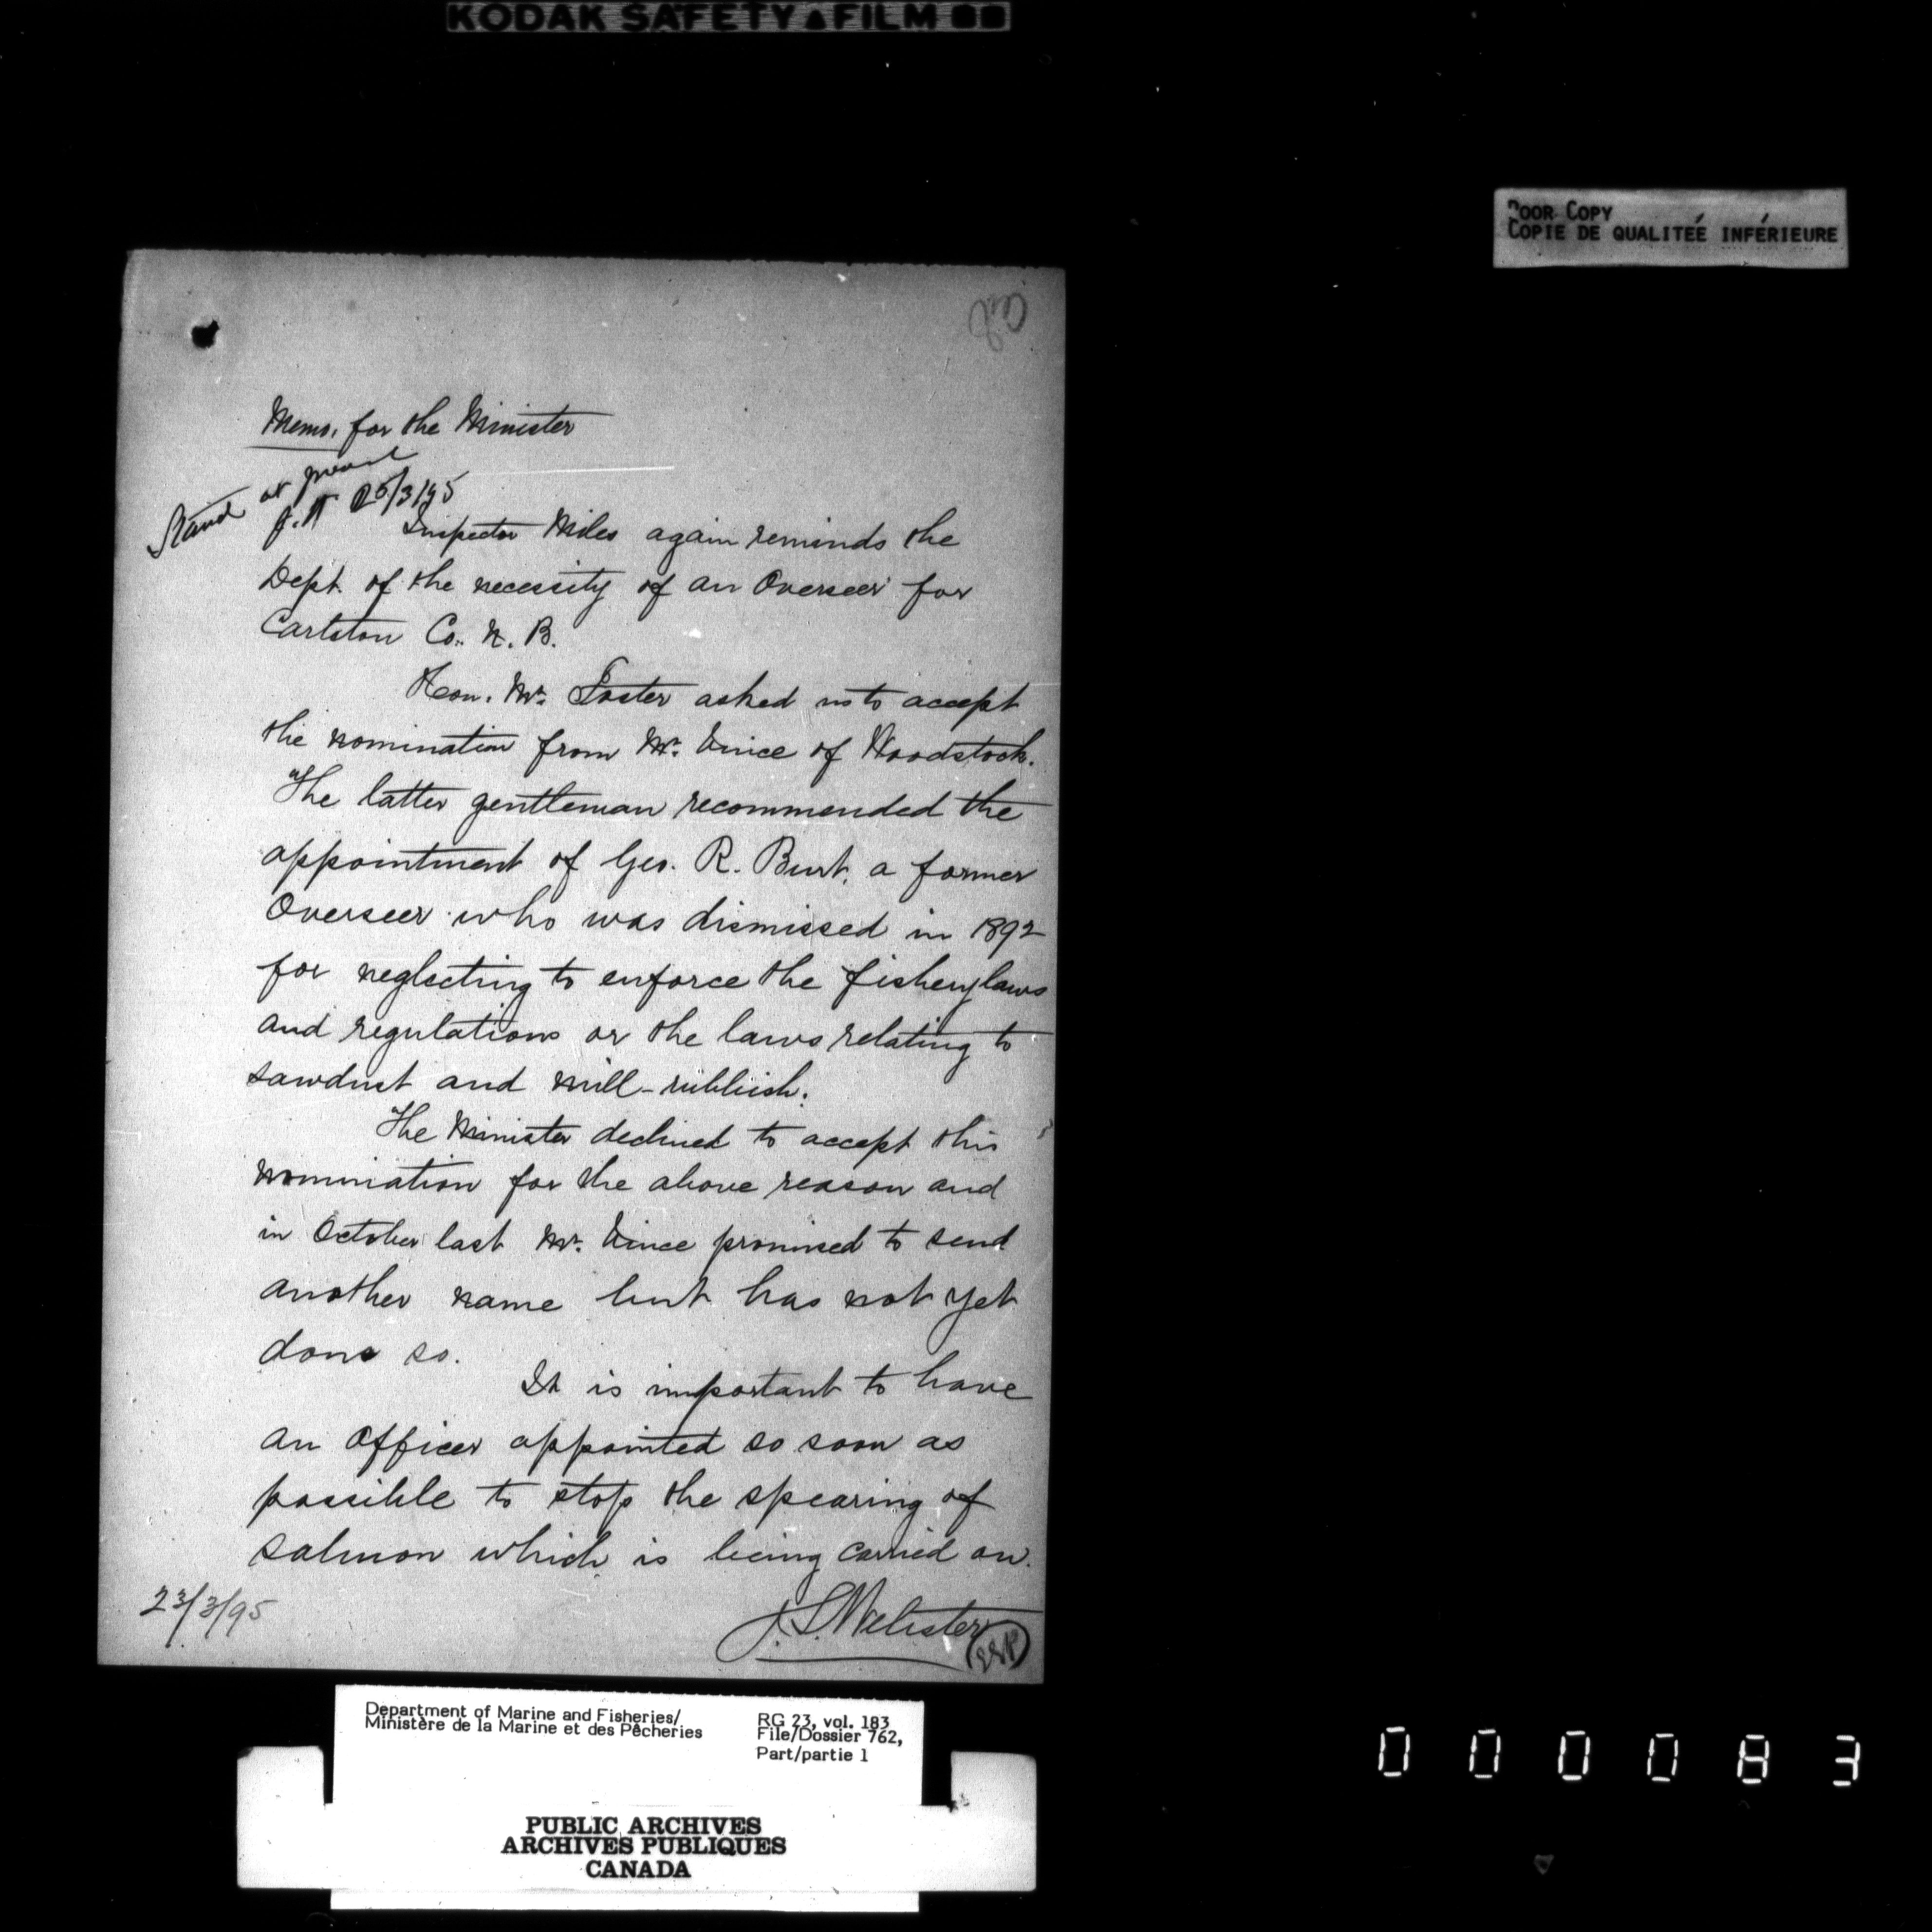 KODAK SAFETY FILM
POOR COPY
COPIE DE QUALITEÉ INFÉRIEURE
Memo. for the Minister
Stand at present
25/3/95
Inspector Miles again reminds the
Dept. of the necessity of an Overseer for
Carleton Co. N. B.
Hon. Mr. Foster asked us to accept
the nomination from Mr. Vince of Woodstock.
The latter gentleman recommended the
appointment of Geo. R. Burt, a former
Overseer who was dismissed in 1892
for neglecting to enforce the fishery laws
and regulations or the laws relating to
sawdust and mill-rubbish.
The Minister declined to accept this
nomination for the above reason and
in October last Mr. Vince promised to send
another name but has not yet
done so.
It is important to have
an Officer appointed so soon as
possible to stop the spearing of
salmon which is being carried on.
23/3/95
J. S. Webster
Department of Marine and Fisheries/
Ministère de la Marine et des Pêcheries
RG 23, vol. 183
File/Dossier 762,
Part/partie 1
PUBLIC ARCHIVES
ARCHIVES PUBLIQUES
CANADA
000083